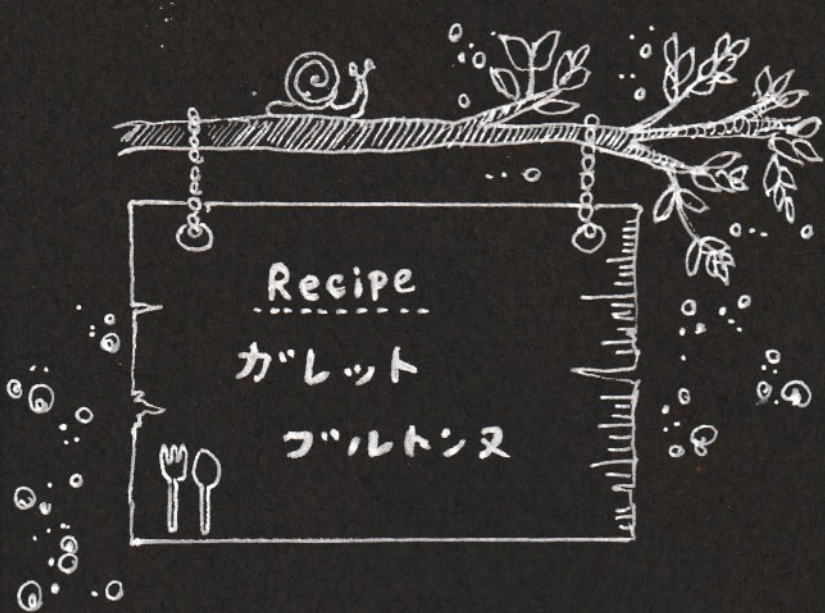 Recipe
ガレット
ブルトンヌ